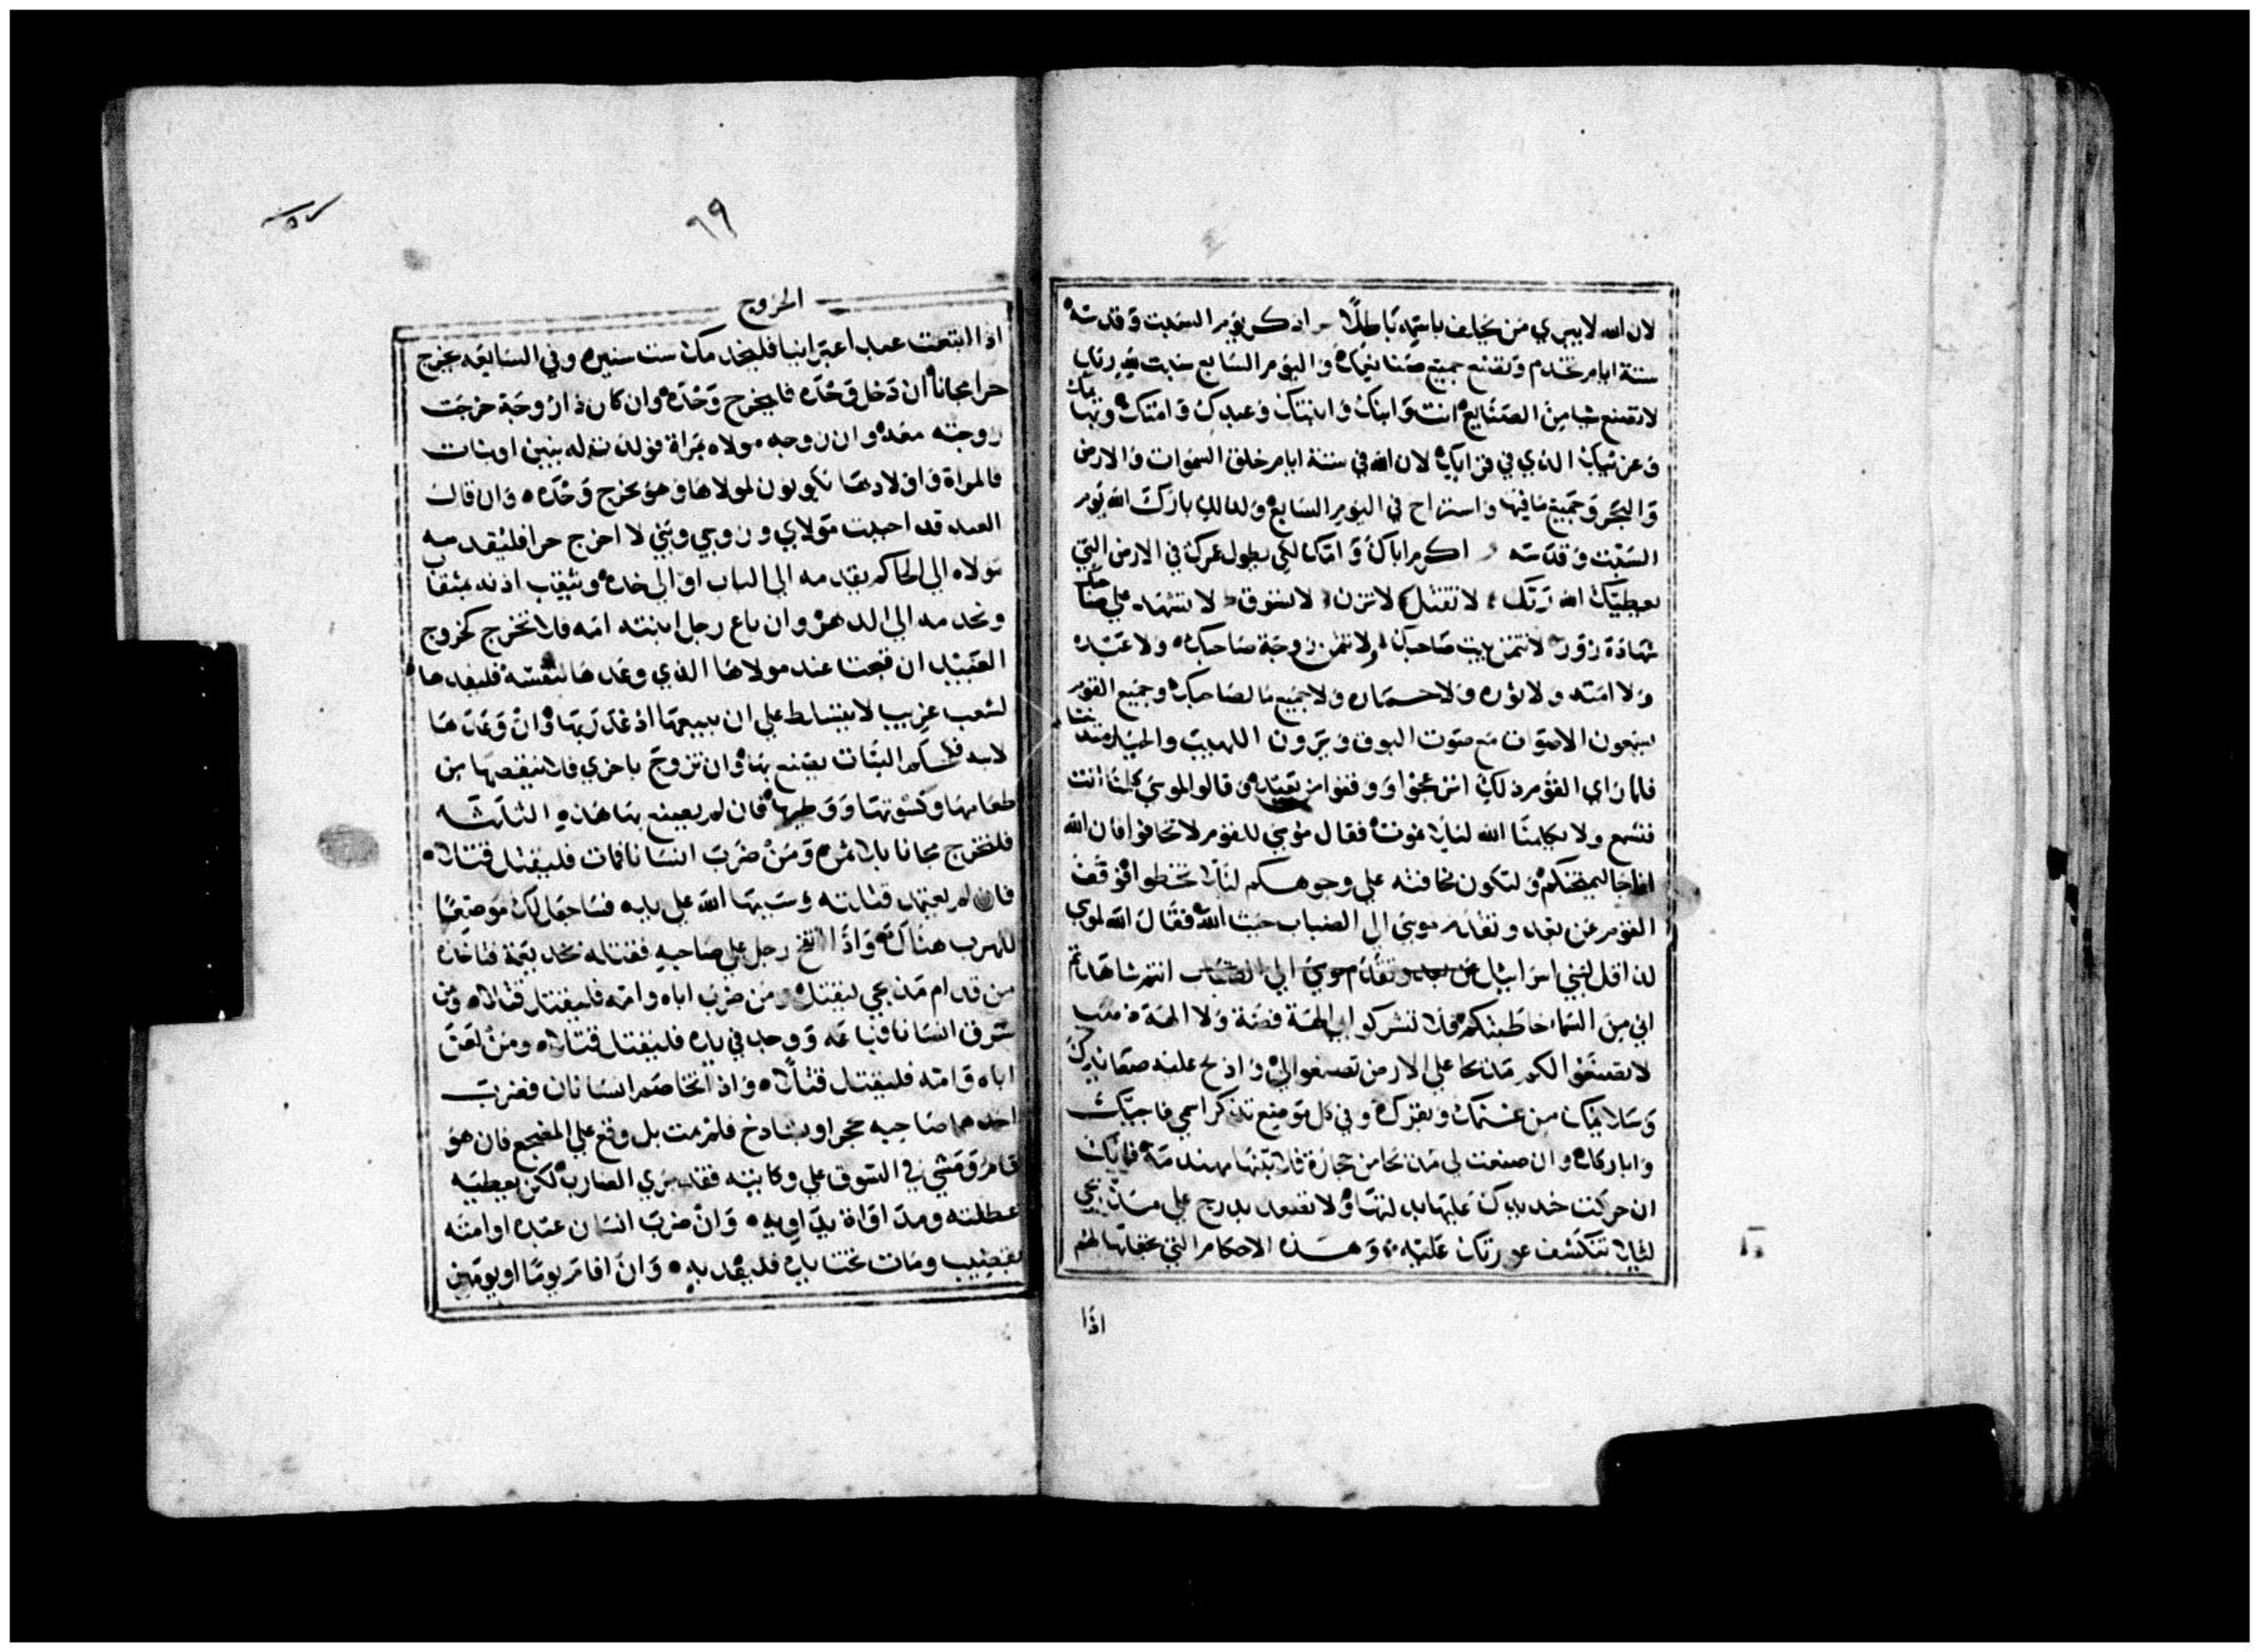 لان الله لا يبري من يحلف باسمه باطلًا اذكر يوم السبت وقدسه
ستة ايام تخدم وتصنع جميع صنايعك واليوم السابع سبت لله ربك
لا تصنع شيا من الصنايع انت وابنك وابنتك وعبدك وامتك وبهايمك
وعزيبك الذي في قراياك لان الله في ستة ايام خلق السموات والارض
والبحر وجميع ما فيها واستراح في اليوم السابع ولذلك بارك الله يوم
السبت وقدسه اكرم اباك وامك لكي يطول عمرك في الارض التي
يعطيك الله ربك لا تقتل لا تزن لا تسرق لا تشهد علي صاحبك
شهادة زور لا تتمن بيت صاحبك ولا تتمن زوجة صاحبك ولا عبده
ولا امته ولا ثوره ولا حماره ولا جميع ما لصاحبك وجميع القوم
يسمعون الاصوات مع صوت البوق ويرون اللهيب والجبل مدخنا
فلما راي القوم ذلك انزعجوا ووقفوا من بعيد وقالوا لموسي كلمنا انت
فنسمع ولا يكلمنا الله ليلا نموت فقال موسي للقوم لا تخافوا فان الله
انما جا ليمتحنكم ولتكون مخافته علي وجوهكم ليلا تخطوا فوقف
القوم عن بعد وتقدم موسي الي الضباب حيث الله فقال الله لموسي
كذا قل لبني اسراييل عن بعد وتقدم موسي الي الضباب انتم شاهدتم
اني من السما خاطبتكم فلا تشركوا بي الهة فضة ولا الهة ذهب
لا تصنعوا لكم مذبحا علي الارض تصنعوا لي واذبح عليه صعايدك
وسلايمك من غنمك وبقرك وفي كل موضع تذكر اسمي فاجيك
واباركك وان صنعت لي مذبحا من حجارة فلا تبنها مهندمة فانك
ان حركت حديدك عليها بدلتها ولا تصعد بدرج علي مذبحي
ليلا تنكشف عورتك عليه وهذه الاحكام التي تجعلها لهم
اذا
٦٩
الخروج
اذا ابتعت عبدا عبرانيا فليخدمك ست سنين وفي السابعه يخرج
حرا مجانا ان دخل وحده فليخرج وحده وان كان ذا زوجة خرجت
زوجته معه وان زوجه مولاه مراة فولدت له بنين او بنات
فالمراة واولادها يكونون لمولاها وهو يخرج وحده وان قال
العبد قد احببت مولاي وزوجي وبني لا اخرج حرا فليقدمه
مولاه الي الحاكم يقدمه الي الباب او الي خده ويثقب اذنه بمثقب
ويخدمه الي الدهر وان باع رجل ابنته امه فلا تخرج كخروج
العبيد ان قبحت عند مولاها الذي وعدها لنفسه فليفدها
لشعب غريب لا يتسلط علي ان يبيعها اذ غدر بها وان وعدها
لابنه فكحكم البنات يصنع بها وان تزوج باخري فلا ينقصها من
طعامها وكسوتها ووطيها فان لم يصنع بها هذه الثلاثه
فلتخرج مجانا بلا ثمن ومن ضرب انسانا فمات فليقتل قتلا
فان لم يعتمد قتلته وسببها الله علي يده فساجعل لك موضعا
للهرب هناك واذا اتقح رجل علي صاحبه فقتله بخديعة فتاخذه
من قدام مذبحي ليقتل ومن ضرب اباه وامه فليقتل قتلا ومن
سرق انسانا فباعه ووجد في يده فليقتل قتلا ومن لعن
اباه وامه فليقتل قتلا واذا تخاصم انسانان فضرب
احدهما صاحبه بحجر او بشادخ فلم يمت بل وقع علي المضجع فان هو
قام ومشي في السوق علي وكابته فقد بري الضارب لكن يعطيه
عطلته ومداواة يداويه وان ضرب انسان عبده او امته
بقضيب ومات تحت يده فليقد به وان اقام يوما او يومين